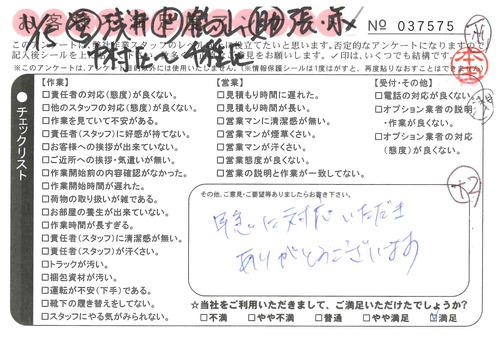 № 037575
このアンケートは、弊社作業スタッフのレベル向上に役立てたいと思います。否定的なアンケートになりますので
記入後シールを上から貼って、ご意見をお願いします。✓印は、いくつでも結構です。
(※このアンケートは、アンケート目的以外には使用いたしません。)(※情報保護シールは1度がはすと、再度貼りなおすことはできません。)
チェックリスト
【作業】
□責任者の対応(態度)が良くない。
□他のスタッフの対応(態度)が良くない。
□作業を見ていて不安がある。
□責任者(スタッフ)に好感が持てない。
□お客様への挨拶が出来ていない。
□ご近所への挨拶・気遣いが無い。
□作業開始前の内容確認がなかった。
□作業開始時間が遅れた。
□荷物の取り扱いが雑である。
□お部屋の養生が出来ていない。
□作業時間が長すぎる。
□責任者(スタッフ)に清潔感が無い。
□責任者(スタッフ)が汗くさい。
□トラックが汚い。
□梱包資材が汚い。
□運転が不安(下手)である。
□靴下の履き替えをしてない。
□スタッフにやる気がみられない。
【営業】
□見積もり時間に遅れた。
□見積もり時間が長い。
□営業マンに清潔感が無い。
□営業マンが煙草くさい。
□営業マンが汗くさい。
□営業態度が良くない。
□営業の説明と作業が一致してない。
【受付・その他】
□電話の対応が良くない。
□オプション業者の説明
・作業が良くない。
□オプション業者の対応
(態度)が良くない。
その他、ご意見・ご要望等ありましたらお書き下さい。
早急に対応いただき
ありがとうございます
☆当社をご利用いただきまして、ご満足いただけたでしょうか?
□不満 □やや不満 □普通 □やや満足 ☑満足